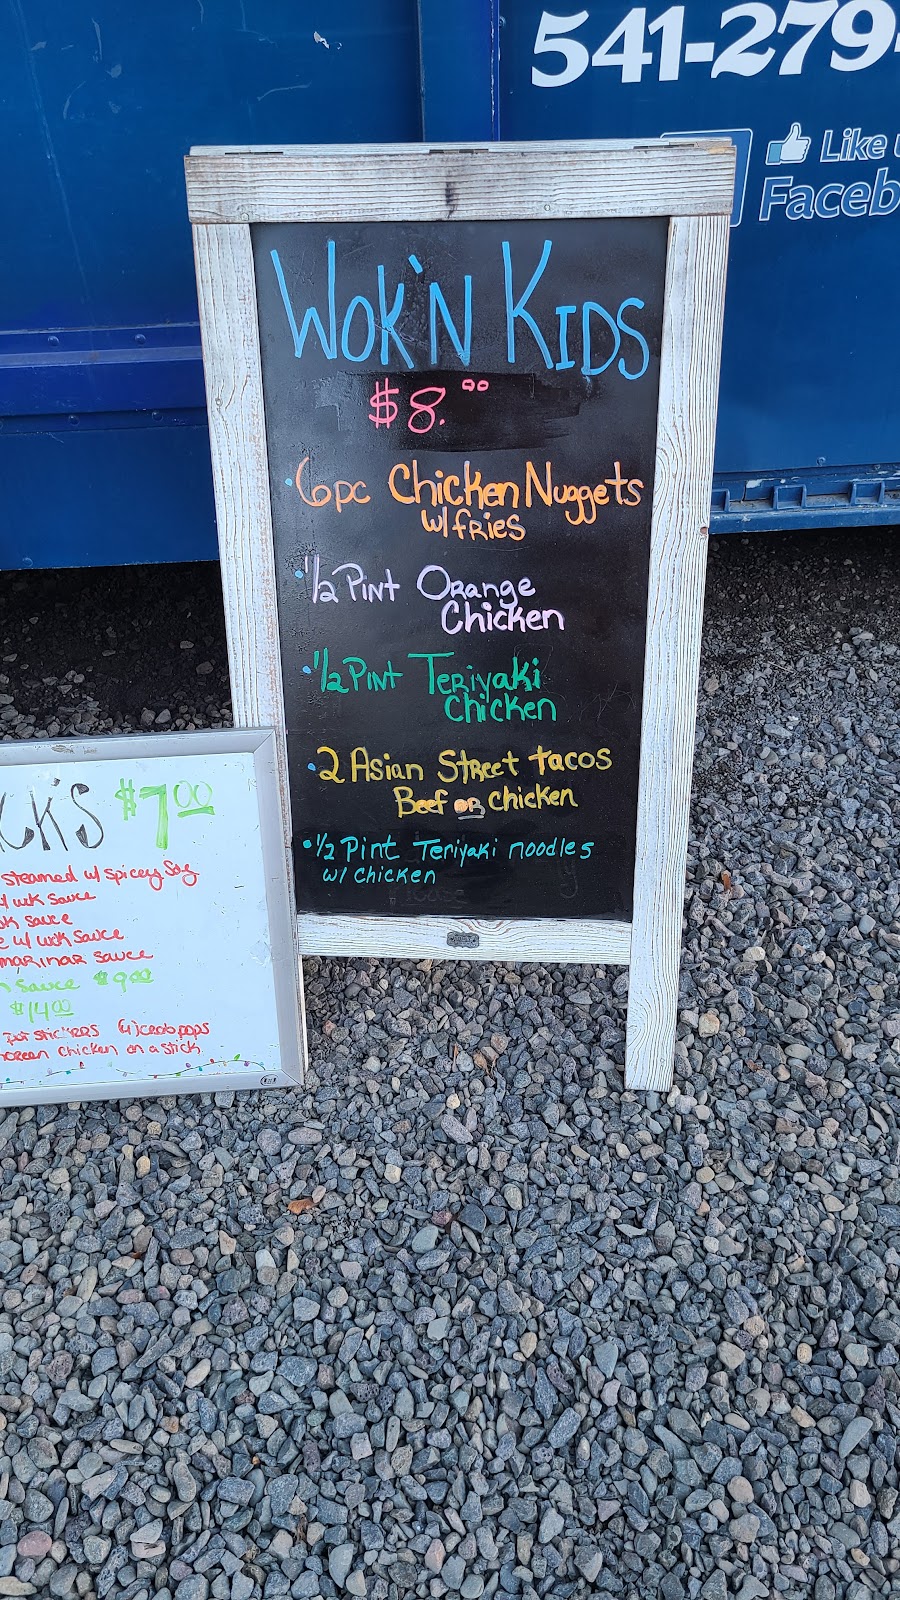 541-279-
Like
Faceb
WOK'N KIDS
$8.00
• 6pc Chicken Nuggets
w/ fries
• 1/2 Pint Orange
Chicken
• 1/2 Pint Teriyaki
Chicken
• 2 Asian Street tacos
Beef or chicken
• 1/2 Pint Teriyaki noodles
w/ chicken
CK'S $7.00
steamed w/ spicey soy
w/ wok sauce
ok sauce
e w/ wok sauce
marinar sauce
sauce $9.00
$14.00
pot stickers (4) crab pops
chicken on a stick.